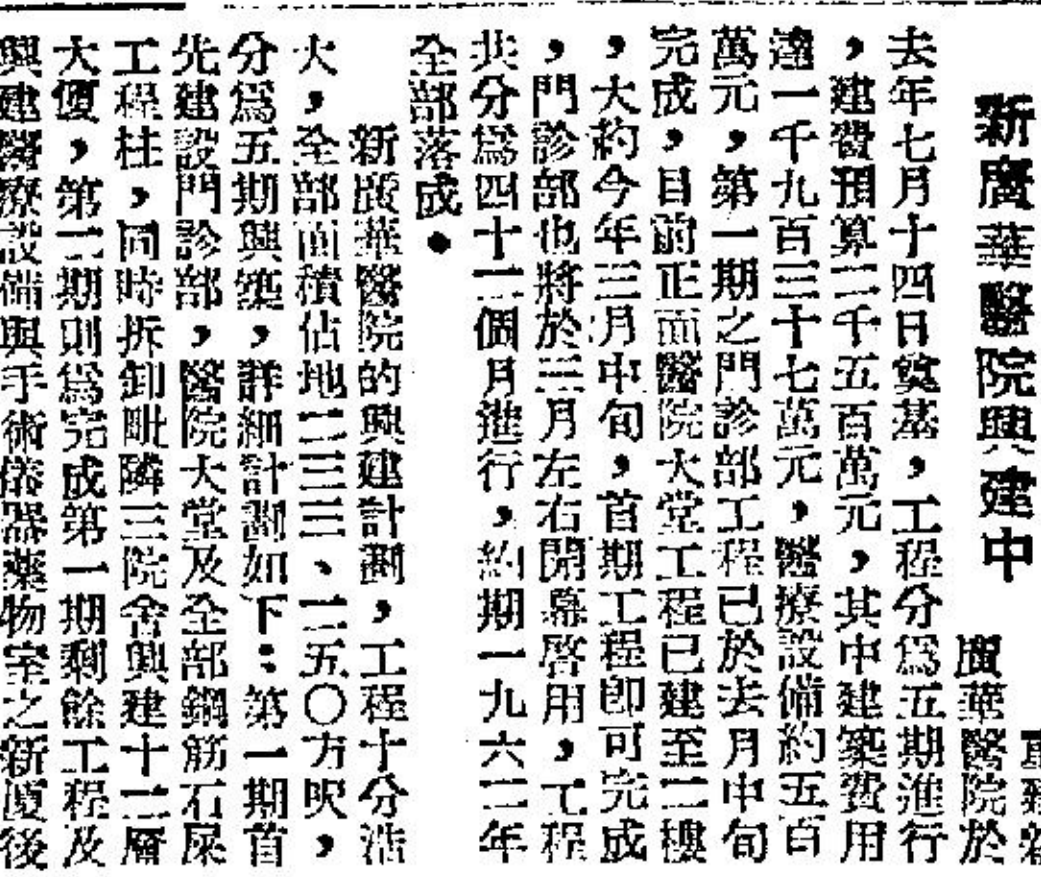 新廣華醫院興建中
廣華醫院於
去年七月十四日奠基，工程分爲五期進行
，建費預算二千五百萬元，其中建築費用
達一千九百三十七萬元，醫療設備約五百
萬元，第一期之門診部工程已於去月中旬
完成，目前正面醫院大堂工程已建至二樓
，大約今年三月中旬，首期工程即可完成
，門診部也將於三月左右開幕啓用，工程
共分爲四十二個月進行，約期一九六二年
全部落成。
新廣華醫院的興建計劃，工程十分浩
大，全部面積佔地二三三、二五〇方呎，
分爲五期興築，詳細計劃如下：第一期首
先建設門診部，醫院大堂及全部鋼筋石屎
工程柱，同時拆卸毗隣三院舍興建十二層
大廈，第二期則爲完成第一期剩餘工程及
興建醫療設備與手術儀器藥物室之新廈後